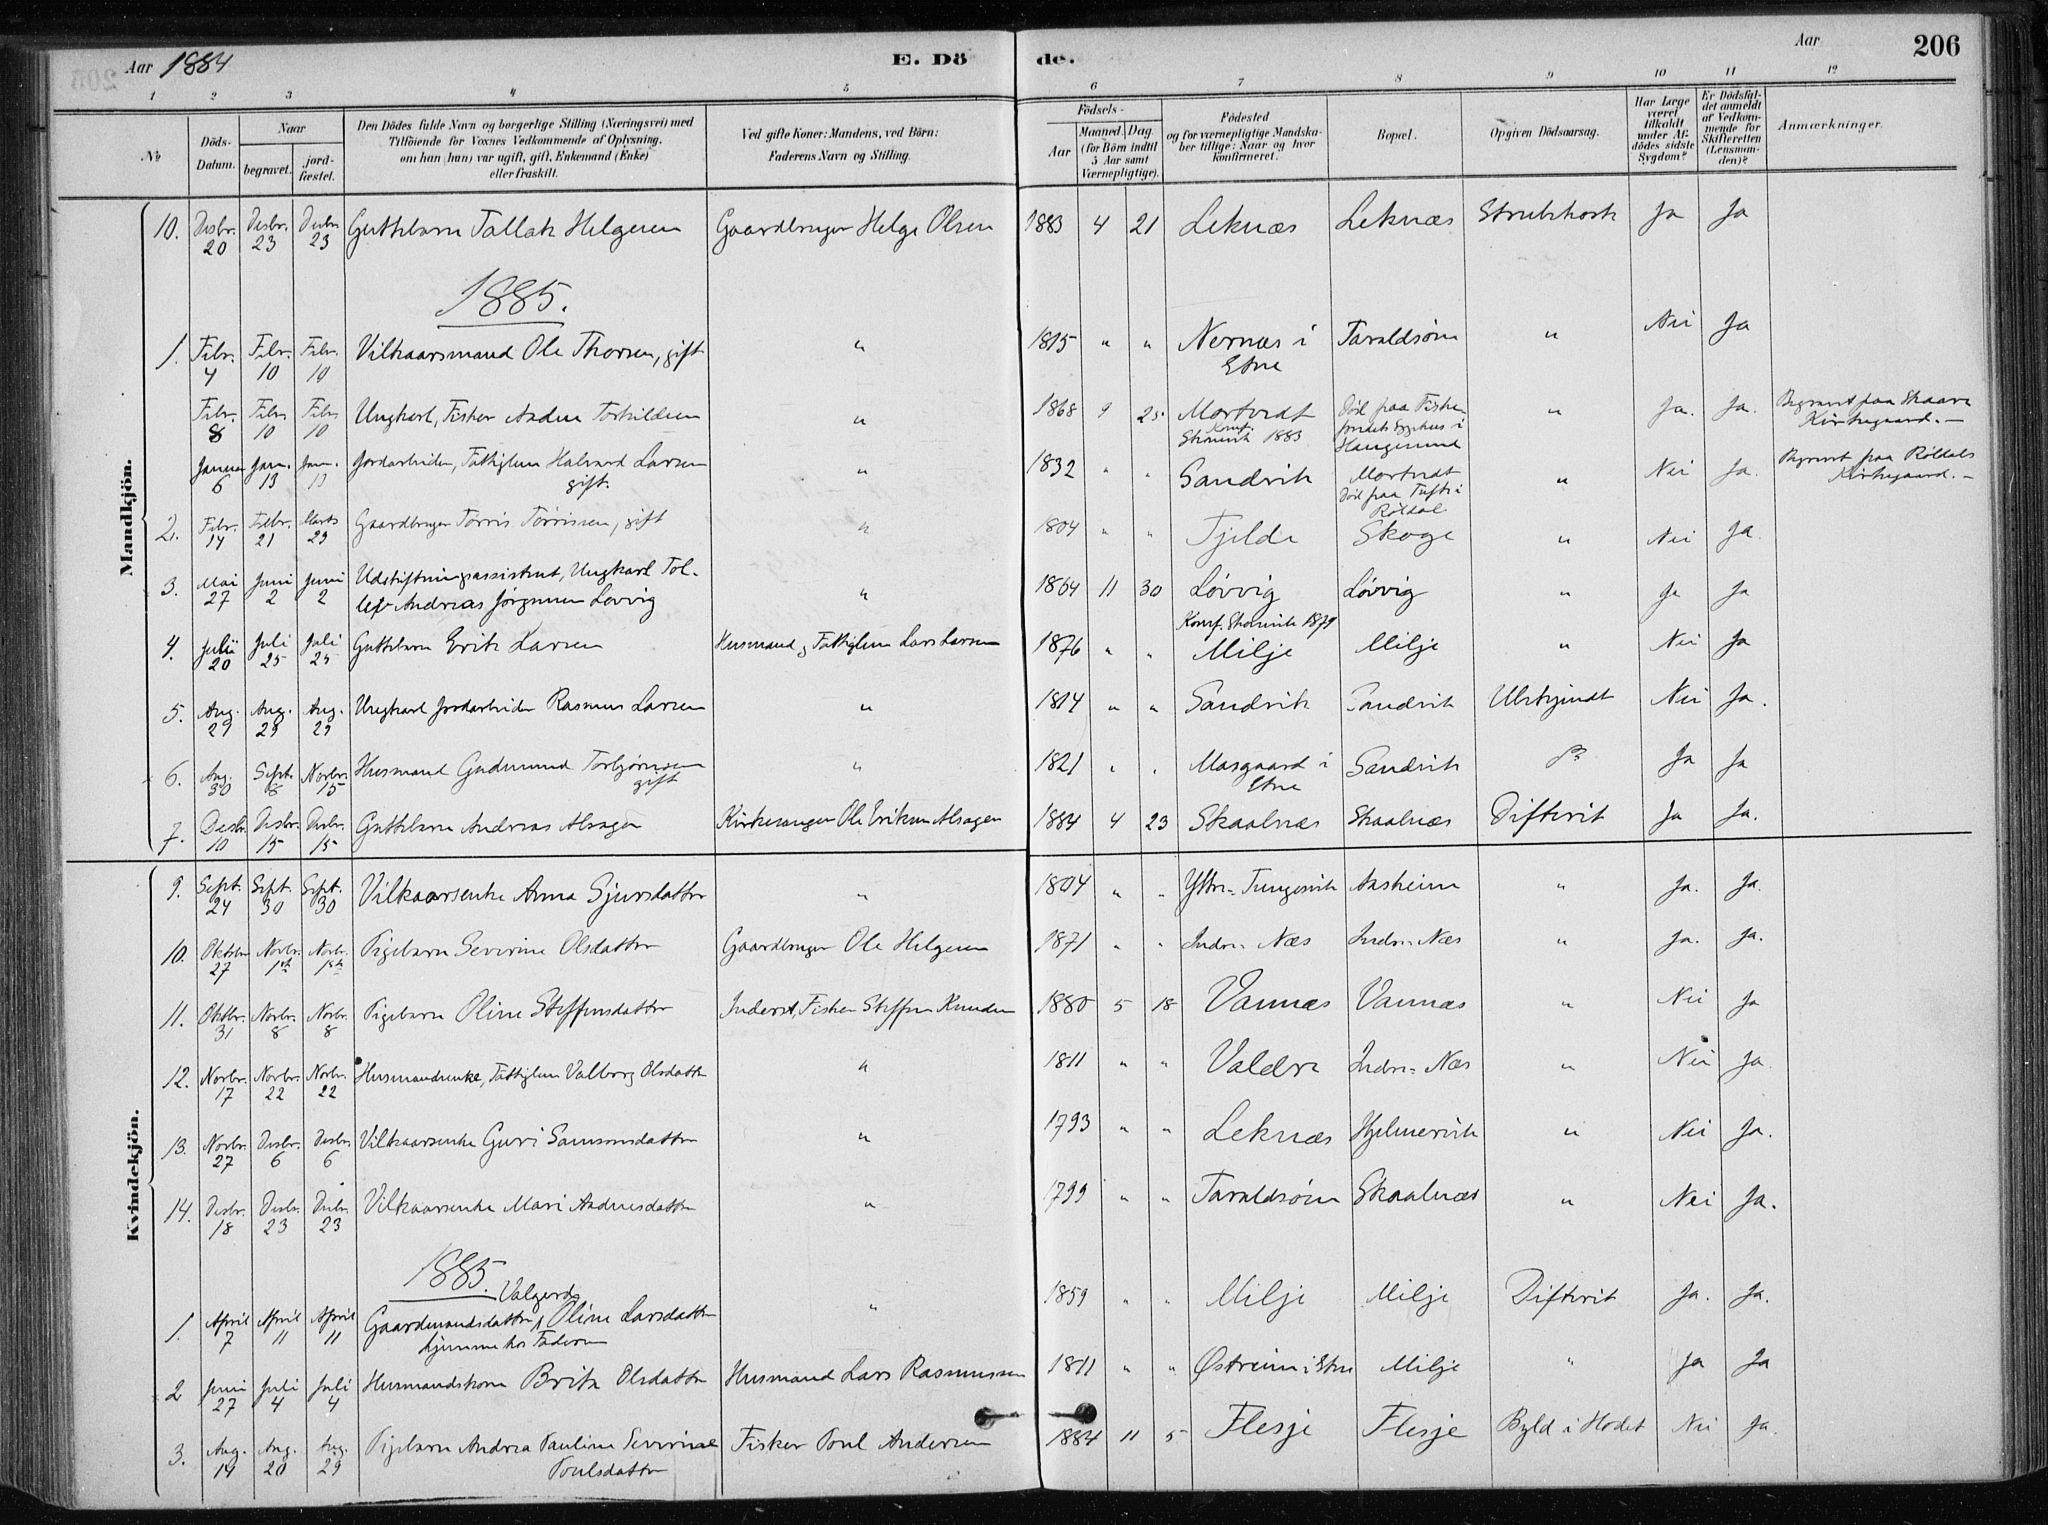 Aar 1884
E. Dö
de.
Aar
206
1 2 3 4 5 6 7 8 9 10 11 12
No
Döds-Datum.
Naar
begravet.
jord-fæstet.
Den Dödes fulde Navn og borgerlige Stilling (Næringsvei) med
Tilföiende for Voxnes Vedkommende af Oplysning,
om han (hun) var ugift, gift, Enkemand (Enke)
eller fraskilt.
Ved gifte Koner: Mandens, ved Börn:
Faderens Navn og Stilling.
Födsels-
Aar
Maaned. Dag.
(for Börn indtil
5 Aar samt
Værnepligtige).
Födested
og for værnepligtige Mandska-
ber tillige: Naar og hvor
konfirmeret.
Bopæl.
Opgiven Dödsaarsag.
Har Læge
været
tilkaldt
under Af-
dödes sidste
Sygdom?
Er Dödsfal-
det anmeldt
af Vedkom-
mende for
Skifteretten
(Lensman-
den)?
Anmærkninger.
Mandkjön.
10. Desbr. 20 Desbr. 23 Desbr. 23 Guttebarn Tallak Helgesen Gaardbruger Helge Olsen 1883 4 21 Leknæs Leknæs Strubehoste Ja Ja
1885.
1. Febr. 4 Febr. 10 Febr. 10 Vilkaarsmand Ole Thorsen, gift " 1815 " " Nernæs i Etne Taraldsøen " Nei Ja
Febr. 8 Febr. 10 Febr. 10 Ungkarl, Fisker Anders Torkildsen " 1868 9 25 Mortvedt Konf. Skonevik 1883 Död paa Fiske- Sygehus i Haugesund " Ja. Ja. Begravet paa Skaare Kirkegaard.
Januar 6 Jan. 13 Jan. 13 Jordarbeider, Fattiglem Halvard Larsen gift. " 1832 " " Sandvik Mortvedt Död paa Tufte i Röldal " Nei Ja. Begravet paa Röldals Kirkegaard.
2. Febr. 14 Febr. 21 Marts 29 Gaardbruger Tørris Tørrissen, gift " 1804 " " Tjelde Skoge " Nei Ja.
3. Mai 27 Juni 2 Juni 2 Udskiftningsassistent, Ungkarl Tol-
lef Andreas Jørgensen Løvvig " 1864 11 30 Løvvig Konf. Skonevik 1879 Løvvig " Ja Ja
4. Juli 20 Juli 25 Juli 25 Guttebarn Erik Larsen Husmand, Fattiglem Lars Larsen 1876 " " Milje Milje " Nei Ja
5. Aug. 29 Aug. 29 Aug. 29 Ungkarl Jordarbeider Rasmus Larsen " 1814 " " Sandvik Sandvik Ubekjendt Nei Ja.
6. Aug. 30 Sept. 8 Novbr. 15 Husmand Gudmund Torbjørnsen gift " 1821 " " Masgaard i Etne Sandvik Ja Ja
7. Desbr. 10 Desbr. 15 Desbr. 15 Guttebarn Andreas Alsager Kirkesanger Ole Eriksen Alsager 1884 4 23 Skaalnæs Skaalnæs Difterit Ja Ja.
Kvindekjön.
9. Sept. 24 Sept. 30 Sept. 30 Vilkaarsenke Anna Sjursdatter " 1804 " " Yttre-Tungesvik Aasheim " Ja. Ja.
10. Oktober 27 Novbr. 1ste Novbr. 1ste Pigebarn Severine Olsdatter Gaardbruger Ole Helgesen 1871 " " Indre-Næs Indre-Næs " Ja. Ja.
11. Oktbr. 31 Novbr. 8 Novbr. 8 Pigebarn Oline Steffensdatter Inderst, Fisker Steffen Knudsen 1880 5 18 Vannæs Vannæs " Nei Ja
12. Novbr. 17 Novbr. 22 Novbr. 22 Husmandsenke, Fattiglem Valborg Olsdatter " 1811 " " Valdre Indre-Næs " Nei Ja.
13. Novbr. 27 Desbr. 6 Desbr. 6 Vilkaarsenke Guri Samsonsdatter " 1793 " " Leknæs Hjelmervik " Nei Ja.
14. Desbr. 18 Desbr. 23 Desbr. 23 Vilkaarsenke Mari Andersdatter " 1799 " " Taraldsøen Skaalnæs " Nei Ja.
1885.
1. April 7 April 11 April 11 Gaardmandsdatter Valgerd Oline Larsdatter
hjemme hos Faderen " 1859 " " Milje Milje Difterit Ja. Ja.
2 Juni 27 Juli 4 Juli 4 Husmandskone Brita Olsdatter Husmand Lars Rasmussen 1811 " " Østreim i Etne Milje " Ja Ja
3. Aug. 14 Aug. 20 Aug. 29 Pigebarn Andrea Pauline Severine
Poulsdatter Fisker Poul Andersen 1884 11 5 Flesje Flesje Byld i Hodet Nei Ja.